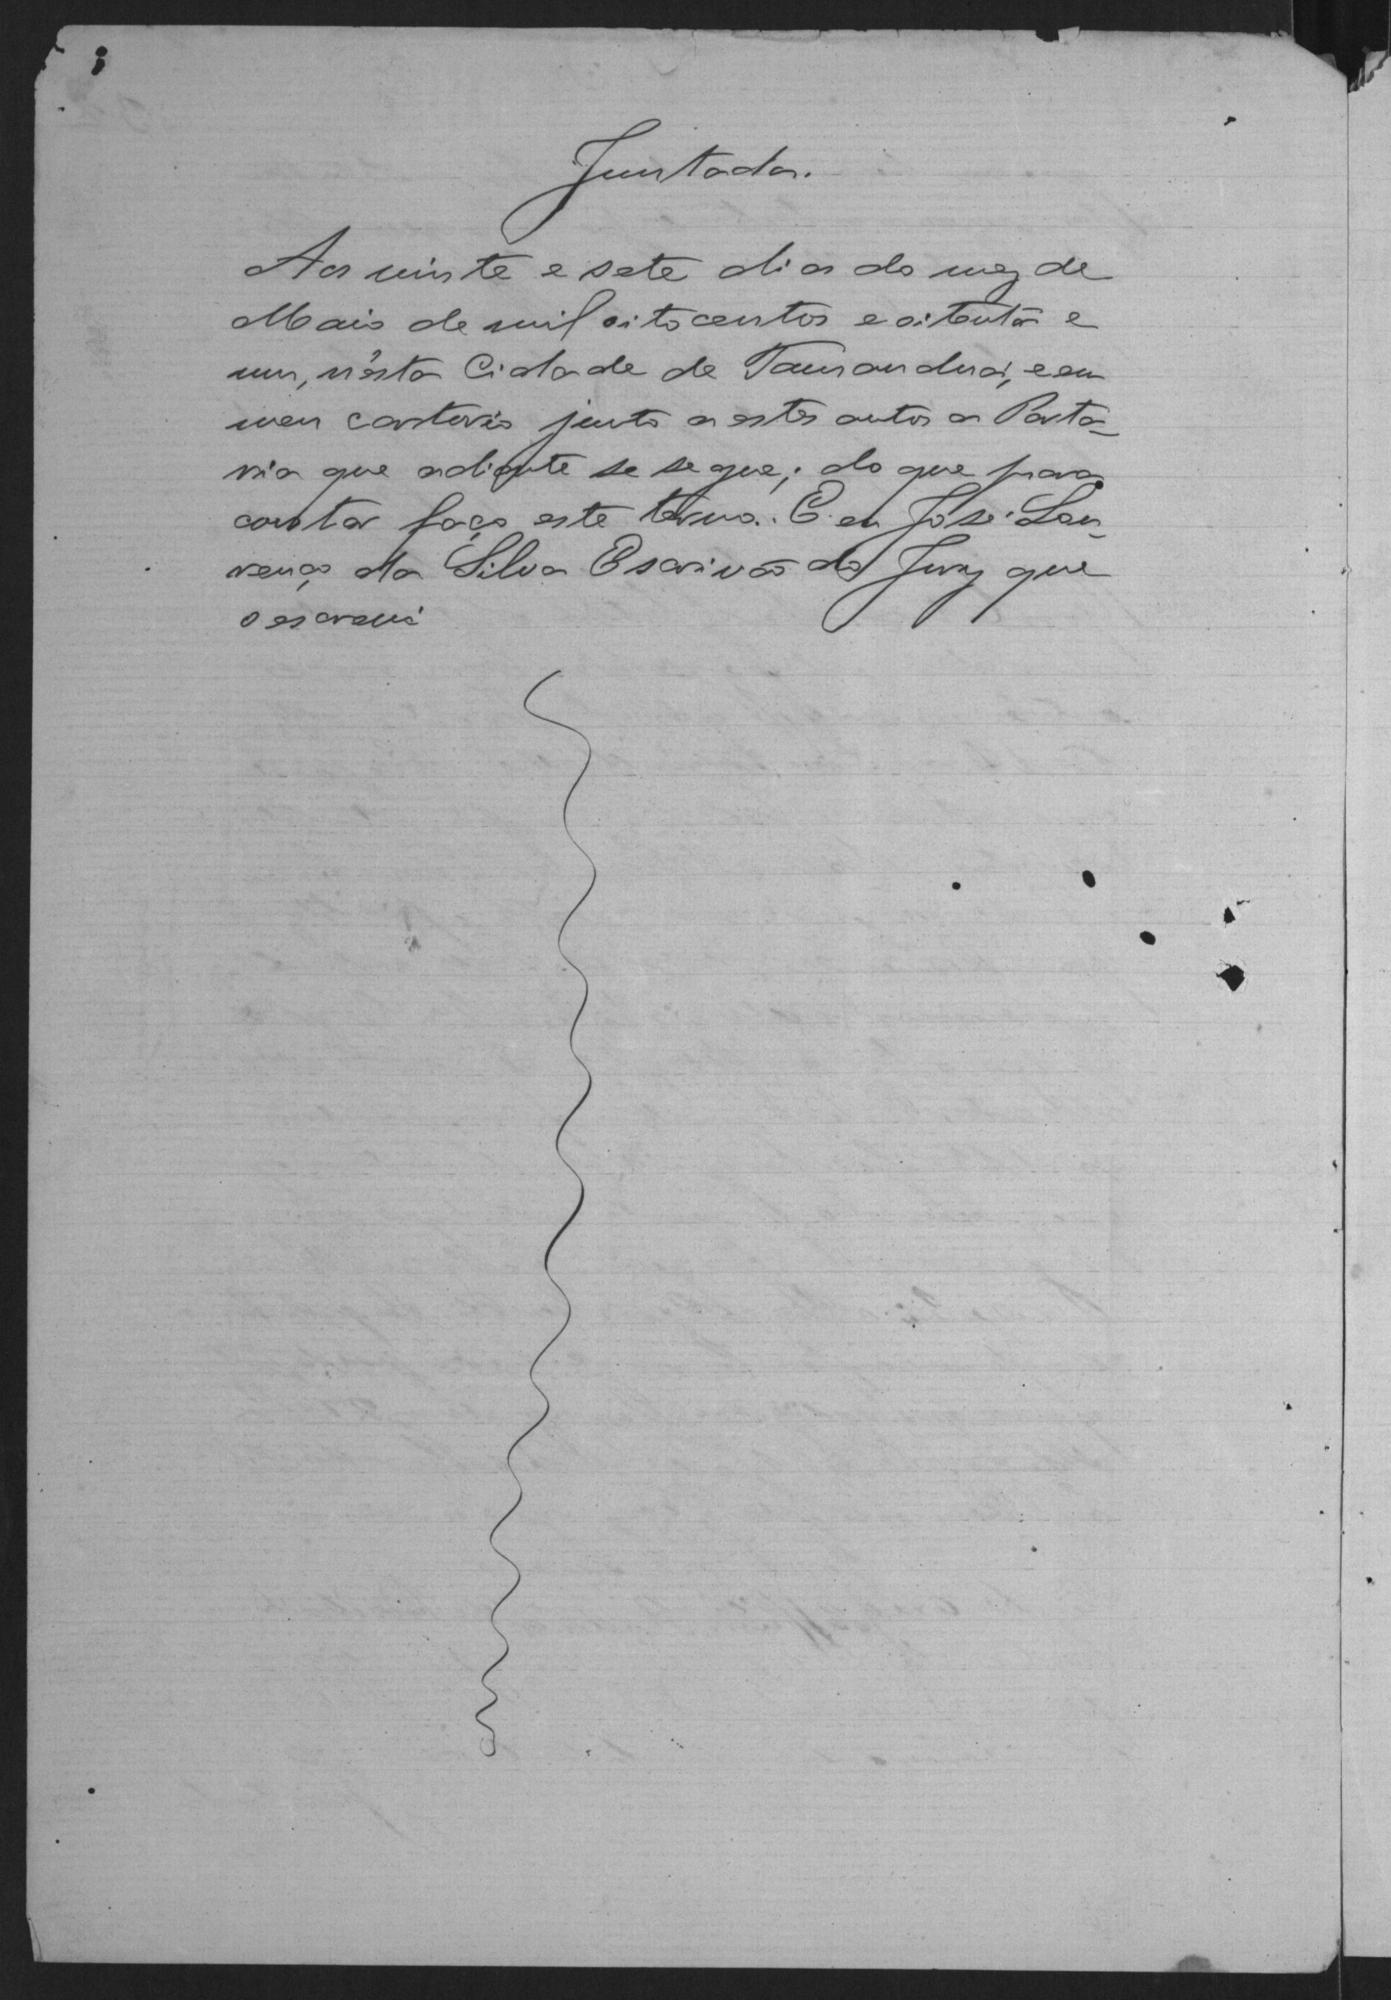 Juntada.
Aos vinte e sete dias do mez de
Maio de mil oitocentos e oitenta e
um, n'esta Cidade de Tamanduá, e em
meu cartorio junto a estes autos a Porta-
ria que adiante se segue; do que para
constar faço este termo. E eu José Lou-
renço da Silva Escrivão do Jury que
o escrevi